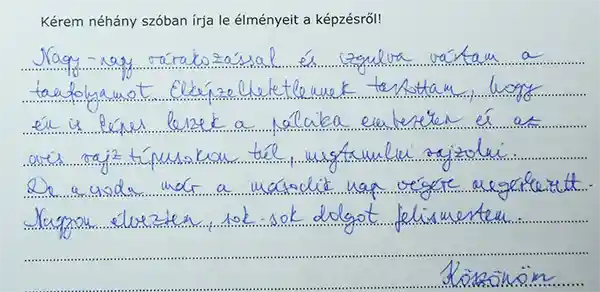 Kérem néhány szóban írja le élményeit a képzésről!
Nagy-nagy várakozással és izgulva vártam a
tanfolyamot. Elképzelhetetlennek tartottam, hogy
én is képes leszek a pálcika emberkéken és az
ovis rajz típusokon túl, megtanulni rajzolni.
De a csoda már a második nap végére megérkezett.
Nagyon élveztem, sok-sok dolgot felismertem.
Köszönöm